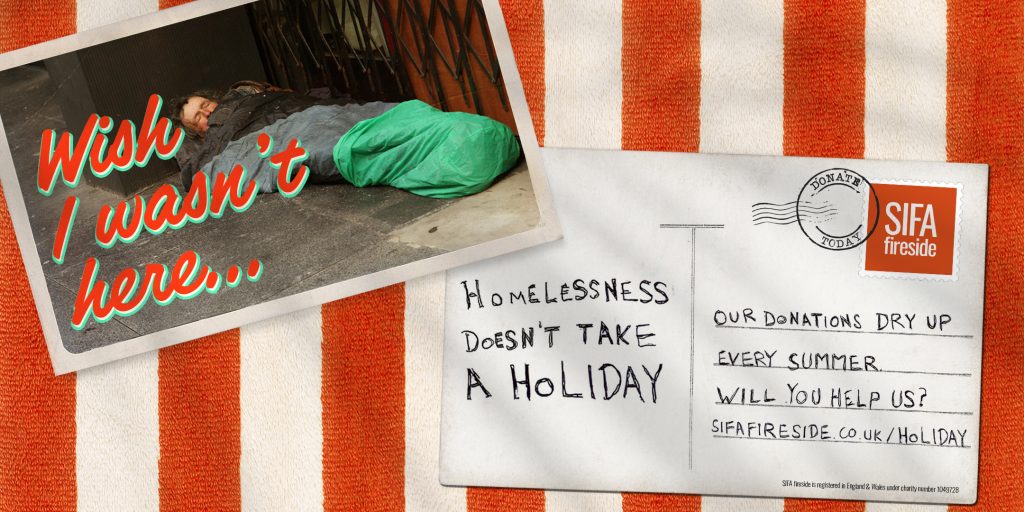 Wish
I wasn't
here...
HOMELESSNESS
DOESN'T TAKE
A HOLIDAY
DONATE
TODAY
SIFA
fireside
OUR DONATIONS DRY UP
EVERY SUMMER.
WILL YOU HELP US?
SIFAFIRESIDE.CO.UK/HOLIDAY
SIFA fireside is registered in England & Wales under charity number 1049728